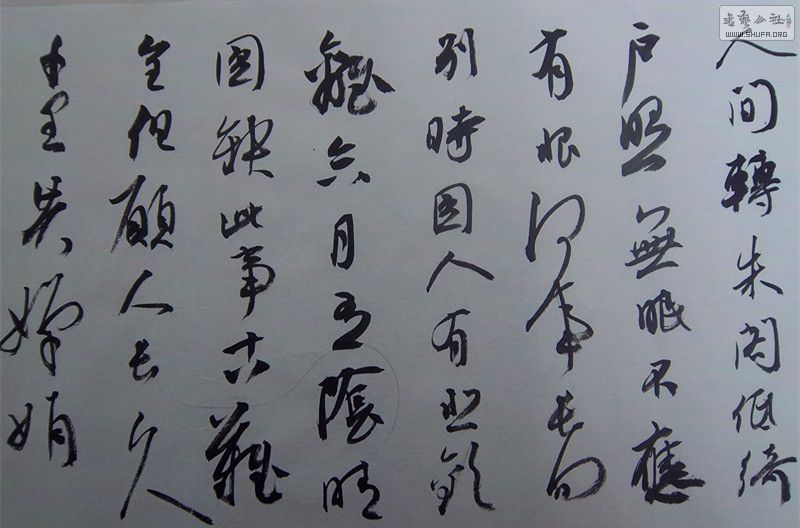 書藝公社
WWW.SHUFA.ORG
人間轉朱閣低綺
户照無眠不應
有恨何事長向
别時圆人有悲歡
離合月有陰晴
圆缺此事古難
全但願人長久
千里共嬋娟